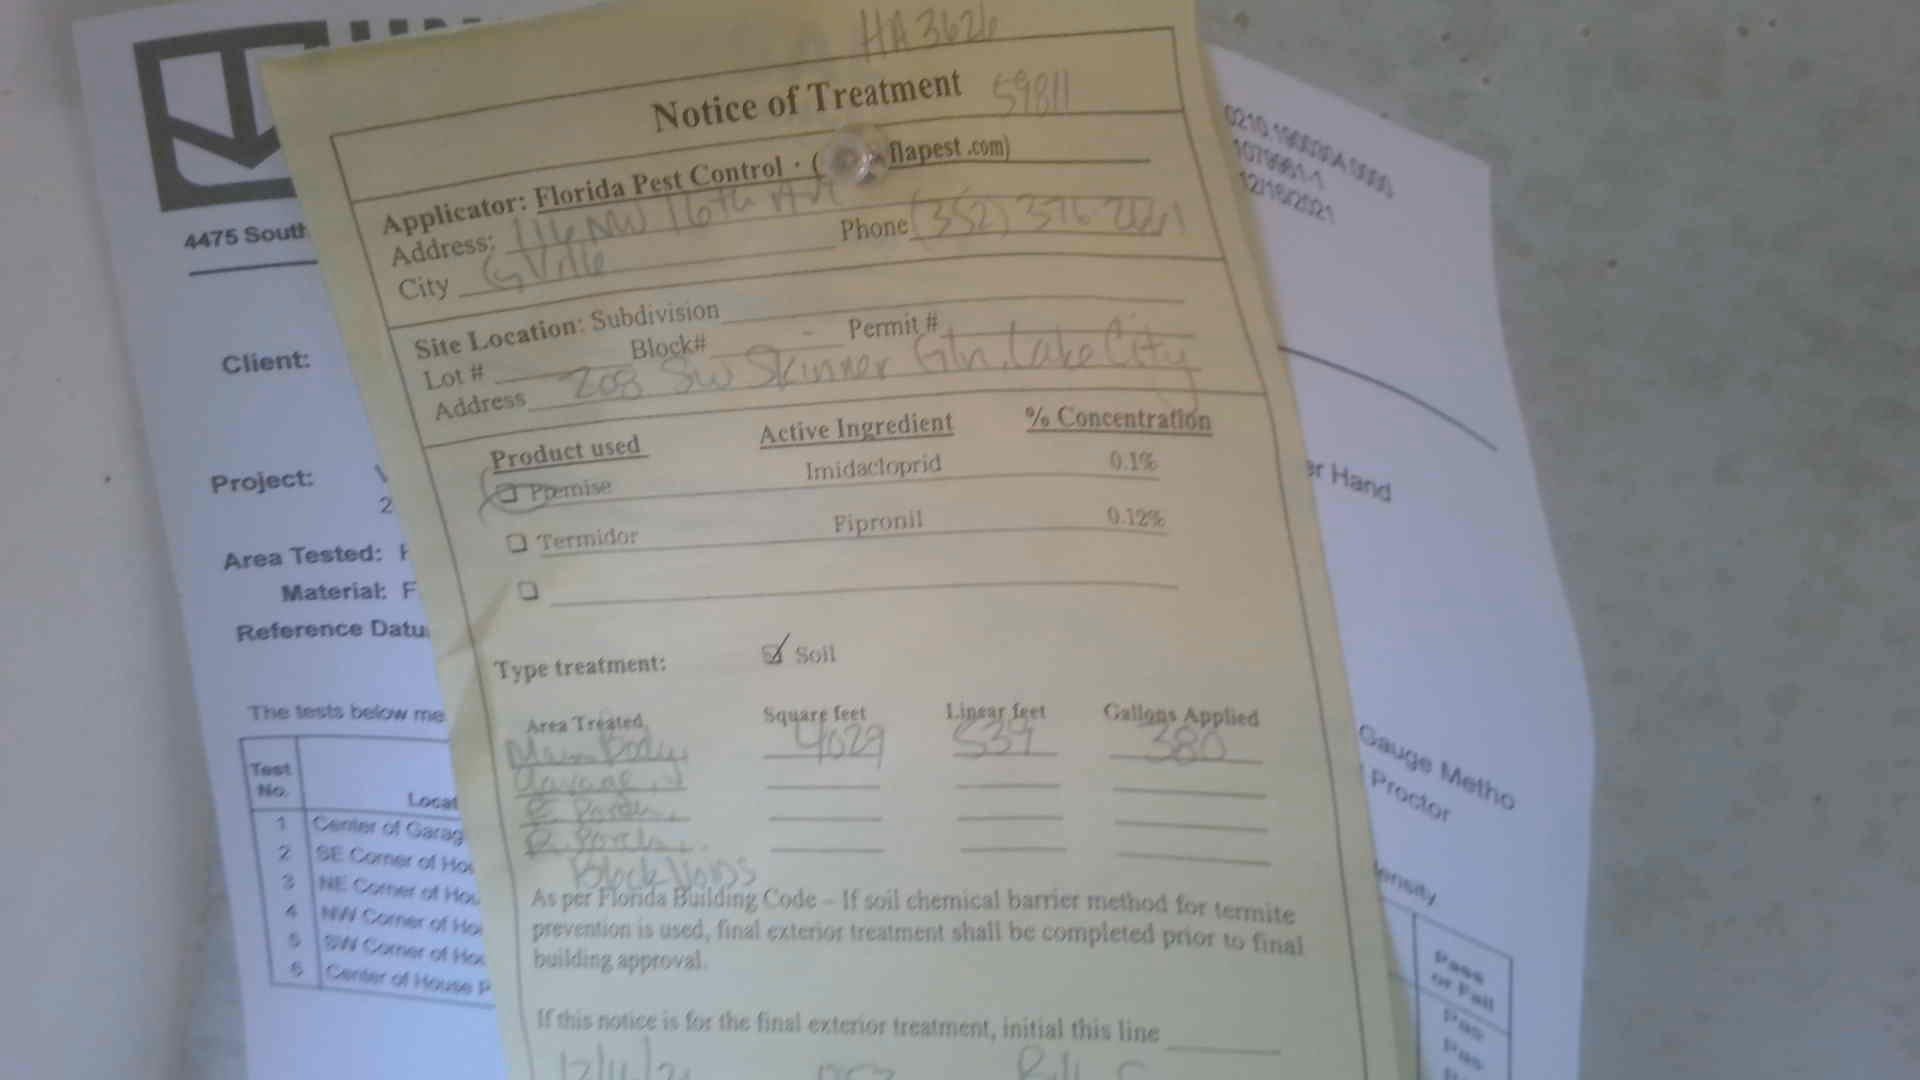 HA3626
Notice of Treatment 59811
Applicator: Florida Pest Control · ( flapest .com)
Address: 116 NW 16th Ave
City GVille Phone (352) 376-2661
Site Location: Subdivision
Lot # Block# Permit #
Address 208 SW Skinner Gln, Lake City
Product used Active Ingredient % Concentration
Premise Imidacloprid 0.1%
Termidor Fipronil 0.12%
Type treatment: Soil
Area Treated Square feet Linear feet Gallons Applied
Main Body 4029 539 380
Garage,
Porch,
R. Porch,
Block Voids
As per Florida Building Code – If soil chemical barrier method for termite
prevention is used, final exterior treatment shall be completed prior to final
building approval.
If this notice is for the final exterior treatment, initial this line
4475 South
Client:
Project:
2
Area Tested:
Material: F
Reference Datu
The tests below me
Test
No. Locat
1 Center of Garag
2 SE Corner of Hou
3 NE Corner of Hou
4 NW Corner of Ho
5 SW Corner of Hou
6 Center of House P
12/16/2021
er Hand
Gauge Metho
Proctor
ensity
Pass
or Fail
Pas
Pas